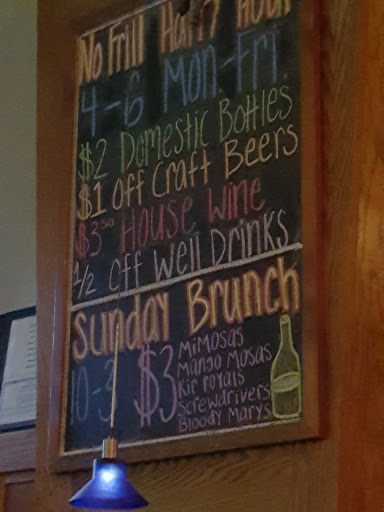 No Frill Happy Hour
4-6 Mon.-Fri.
$2 Domestic Bottles
$1 off Craft Beers
$3.50 House Wine
1/2 off Well Drinks
Sunday Brunch
10-3 $3
Mimosas
Mango Mosas
Kir royals
Screwdrivers
Bloody Marys